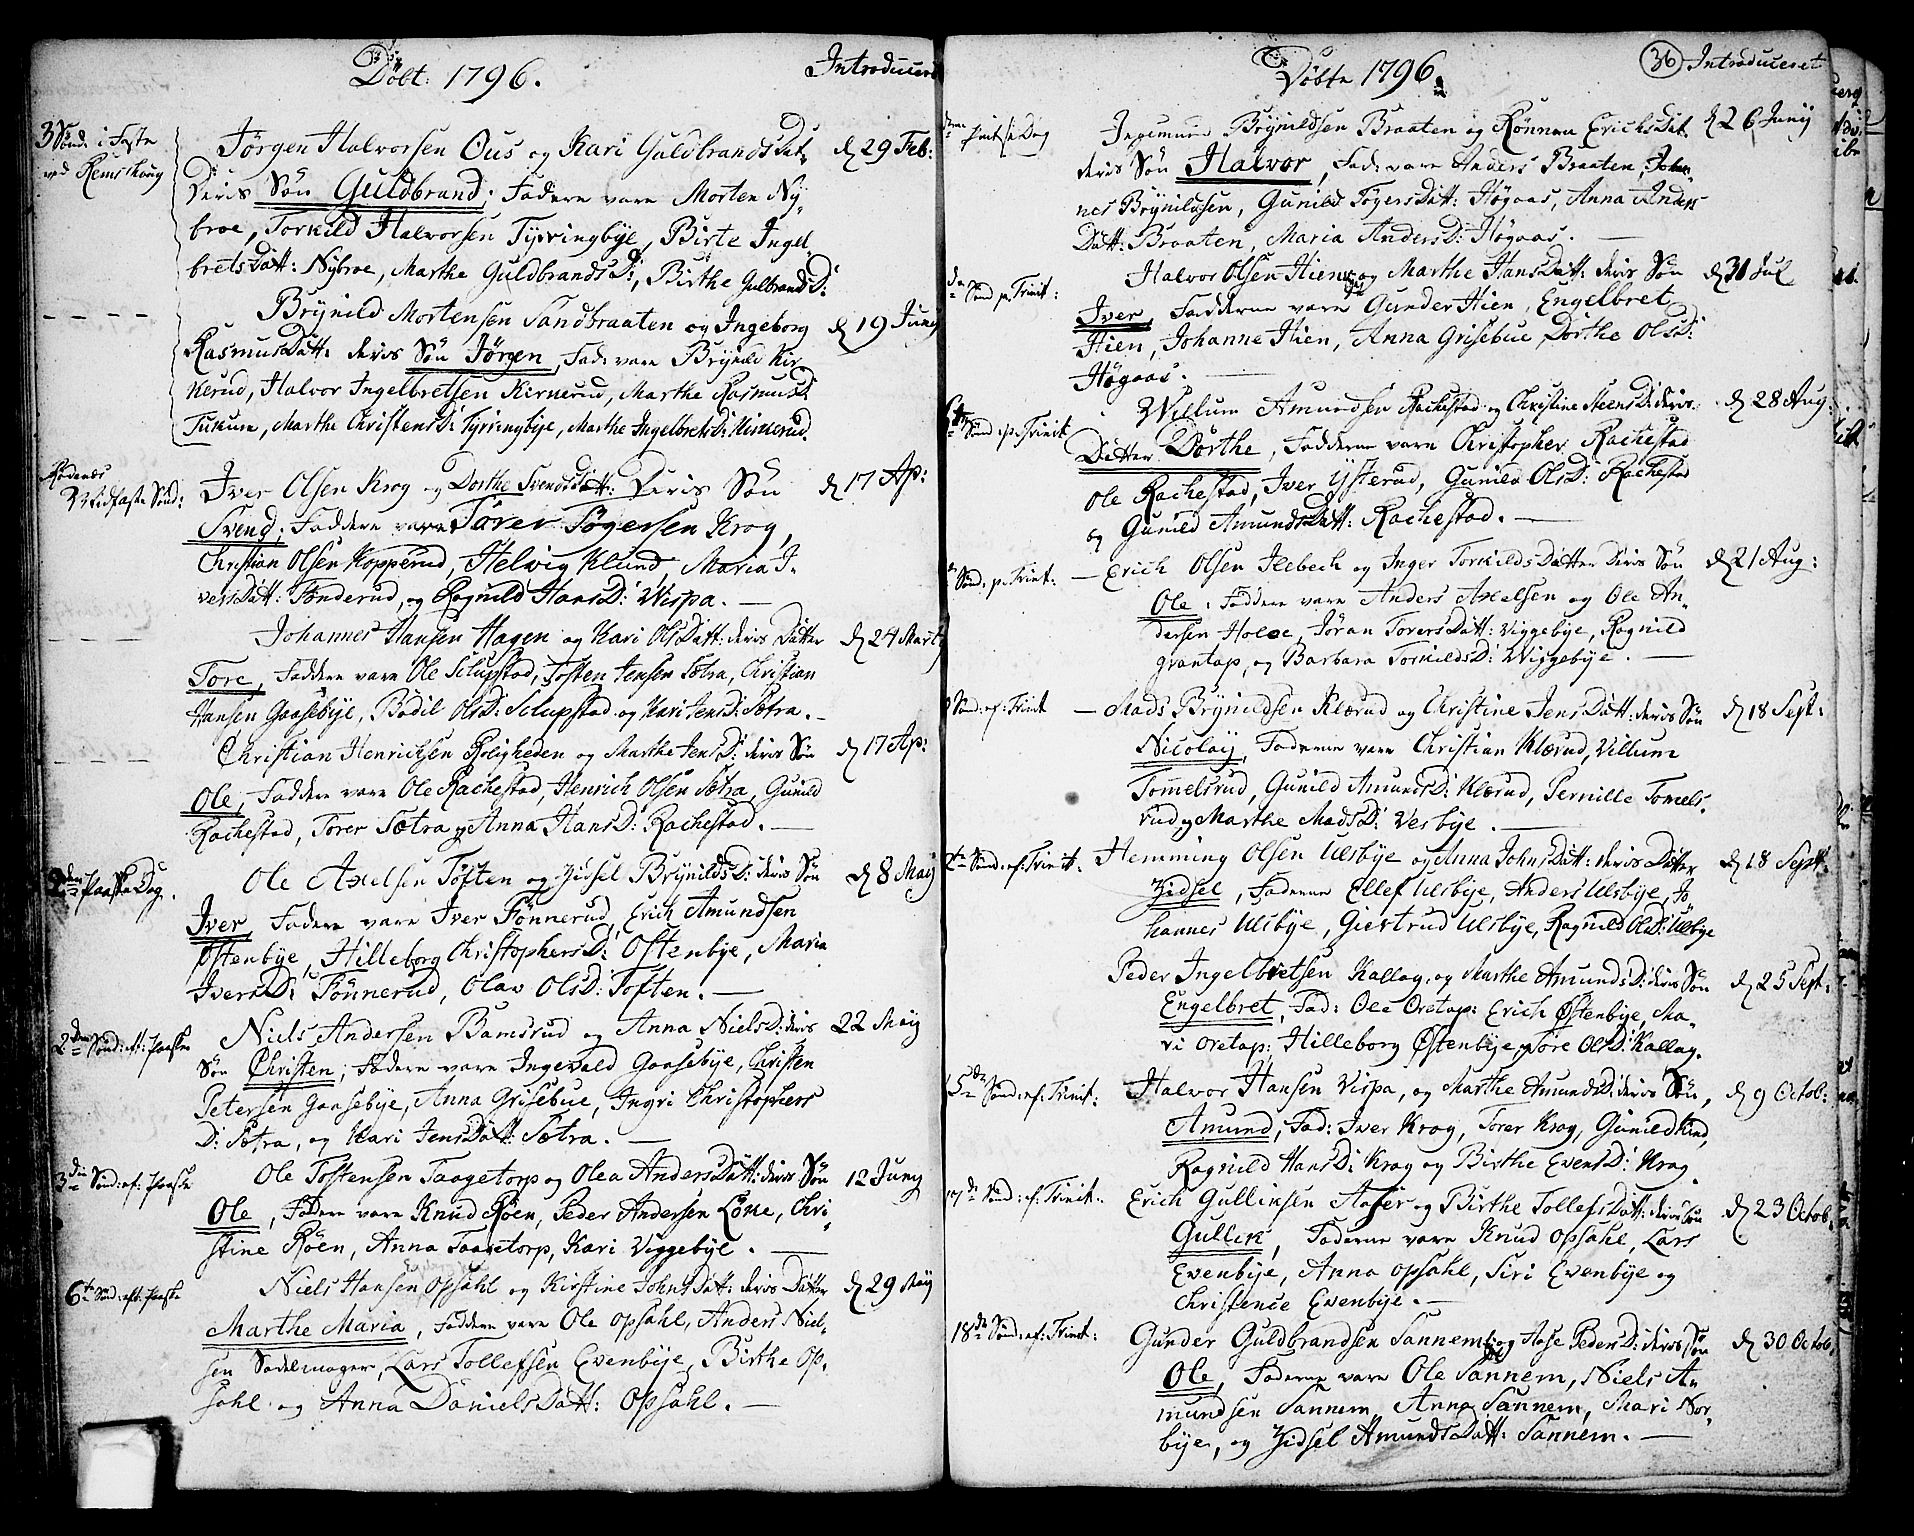 Döbt: 1796.
Introduceret
3 Sönd: i Faste
ved Remskoug
Jörgen Halvorsen Ous og Kari GuldbrandsDat: d 29 Feb:
Deris Sön Guldbrand; Faddere vare Morten Ny-
broe, Torkild Halvorsen Tyrringbÿe, Birte Ingel-
bretsDatt: Nÿbroe, Marthe GuldbrandsD:, Birthe GulbrandsD:
Brÿnild Mortensen Sandbraaten og Ingeborg d 19 Junÿ
RasmusDatt: deris Sön Jörgen, Fad: vare Brÿnild Kir-
kerud, Halvor Ingelbretsen Kirkerud, Marthe RasmusD:
Marthe ChristensD: Tÿrringbÿe, Marthe IngelbretsD: Kirkerud.
Rödenes
Midfaste Sönd:
Iver Olsen Krog og Dorthe SvendsDatt: Deris Sön d 17 Ap:
Svend; Faddere vare Torer Tögersen Krog,
Christian Olsen Kopperud, Helvig Klund Maria I-
versDatt: Tönderud, og Ragnild HansD: Wispa.
Johannes Hansen Hagen og Kari OlsDatt: deris Datter d 24 Marti
Tore, Faddere vare Ole Sclupstad, Tosten Jensen Sætra, Christian
Hansen Gaasebÿe, Bodil OlsD: Sclupstad og Kari JensD: Sætra.
Christian Henrichsen Roligheden og Marthe JensD: deris Sön d 17 Ap:
Ole, Faddere vare Ole Rachestad, Henrich Olsen Sætra, Gunild
Rachestad, Torer Sætra og Anna HansD: Rachestad.
2den Paaske Dag.
Ole Axelsen Toften og Zidsel BrÿnildsD: deris Sön d 8 Maÿ
Iver, Fadere vare Iver Tönnerud, Erich Amundsen
Ostenbÿe, Hilleborg ChristophersD: Ostenbÿe, Maria
IversD: Tönnerud, Olav OlsD: Toften.
2den Sönd: eft: Paaske
Niels Andersen Bamsrud og Anna NielsD: deris 22 Maÿ
Sön Christen; Fadere vare Ingevald Gaasebÿe, Christen
Petersen Gaasebÿe, Anna Grisebue, Ingri Christophers
D: Sætra, og Kari JensDatt: Sætra.
3die Sönd: ef: Paaske
Ole Tostensen Taagetorp og Olea AndersDatt: deris Sön 12 Junÿ
Ole, Fadere vare Knud Röen, Peder Andersen Löne, Chri-
stine Röen, Anna Taagetorp, Kari Viggebÿe.
6te Sönd: eft: Paaske
Niels Hansen Opsahl og Kirstine JohnsDatt: deris Datter d 29 Maÿ
Marthe Maria, Faddere vare Ole Opsahl, Anders Niel-
sen Sadelmager, Lars Tollefsen Evenbÿe, Birthe Op-
sahl og Anna DanielsDatt: Opsahl.
Döbte 1796.
36 Introduceret
Pintse Dag
Ingemun Brÿnildsen Braaten og Rönnau ErichsDat. d 26 Junÿ
deris Sön Halvor, Fad: vare Anders Braaten, Johan-
nes Brÿnildsen, Gunild TögersDatt: Högaas, Anna Anders
Datt: Braaten, Maria AndersD: Högaas.
Sönd p. Trinit:
Halvor Olsen Hien og Marthe HansDatt: deris Sön d 31 Jul
Iver, Fadderne vare Gunder Hien, Engelbret
Hien, Johanne Hien, Anna Grisebue, Dorthe OlsD:
Högaas.
6te Sönd: p. Trinit
Willum Amundsen Rachestad og Christine SteensD: deris d 28 Aug:
Datter Dorthe, Fadderne vare Christopher Rachestad
Ole Rachestad, Iver Ÿsterud, Gunild OlsD: Rachestad
og Gunild AmundsDatt: Rachestad.
Sönd. p. Trint:
Erich Olsen Ilebech og Inger TorkildsDatter Deris Sön d 21 Aug:
Ole, Faddere vare Anders Axelsen og Ole An-
dersen Holöe, Jöran TorersDatt: Viggebÿe, Ragnild
Grantap, og Barbara TorkildsD: Wiggebÿe.
Sönd: ef: Trinit
Mads Brÿnildsen Klærud og Christine JensDatt: deris Sön d 18 Sept:
Nicolaÿ, Faderne vare Christian Klærud, Villum
Tomelsrud, Gunild AmundsD: Klærud, Pernille Tomels-
rud og Marthe MadsD: Vesbÿe.
Sönd: ef: Trinit:
Hemming Olsen Ulsbÿe og Anna JohnsDatt: deris Datter d 18 Sept:
Zidsel, Faderne Ellef Ulsbÿe, Anders Ulsbÿe, Jo-
hannes Ulsbÿe, Giertrud Ulsbÿe, Ragnild OlsD: Ulsbÿe
Peder Ingelbretsen Kallag, og Marthe AmundsD: deris Sön d 25 Sept:
Engelbret, Fad: Ole Oretap: Erich Østenbÿe, Ma-
ri Oretap; Hilleborg Østenbÿe og Tore OlsD: Kallag.
15de Sönd: ef: Trinit:
Halvor Hansen Vispa, og Marthe AmundsD: deris Sön, d 9 Octob:
Amund, Fad: Iver Krog, Torer Krog, Gunild Kind,
Ragnild HansD: Krog og Birthe EvensD: Krog.
17de Sönd: ef: Trinit:
Erich Gullinsen Aaser og Birthe TollefsDatt: deris Sön d 23 Octob:
Gullik, Faderne vare Knud Opsahl, Lars
Evenbÿe, Anna Opsahl, Siri Evenbÿe og
Christence Evenbÿe.
18de Sönd: ef: Trinit:
Gunder Guldbrandsen Sannem og Aase PedersD: deris Sön d 30 Octob:
Ole, Faderne vare Ole Sannem, Niels A-
mundsen Sannem, Anna Sannem, Mari Nor-
bÿe, og Zidsel AmundsDatt: Sannem.